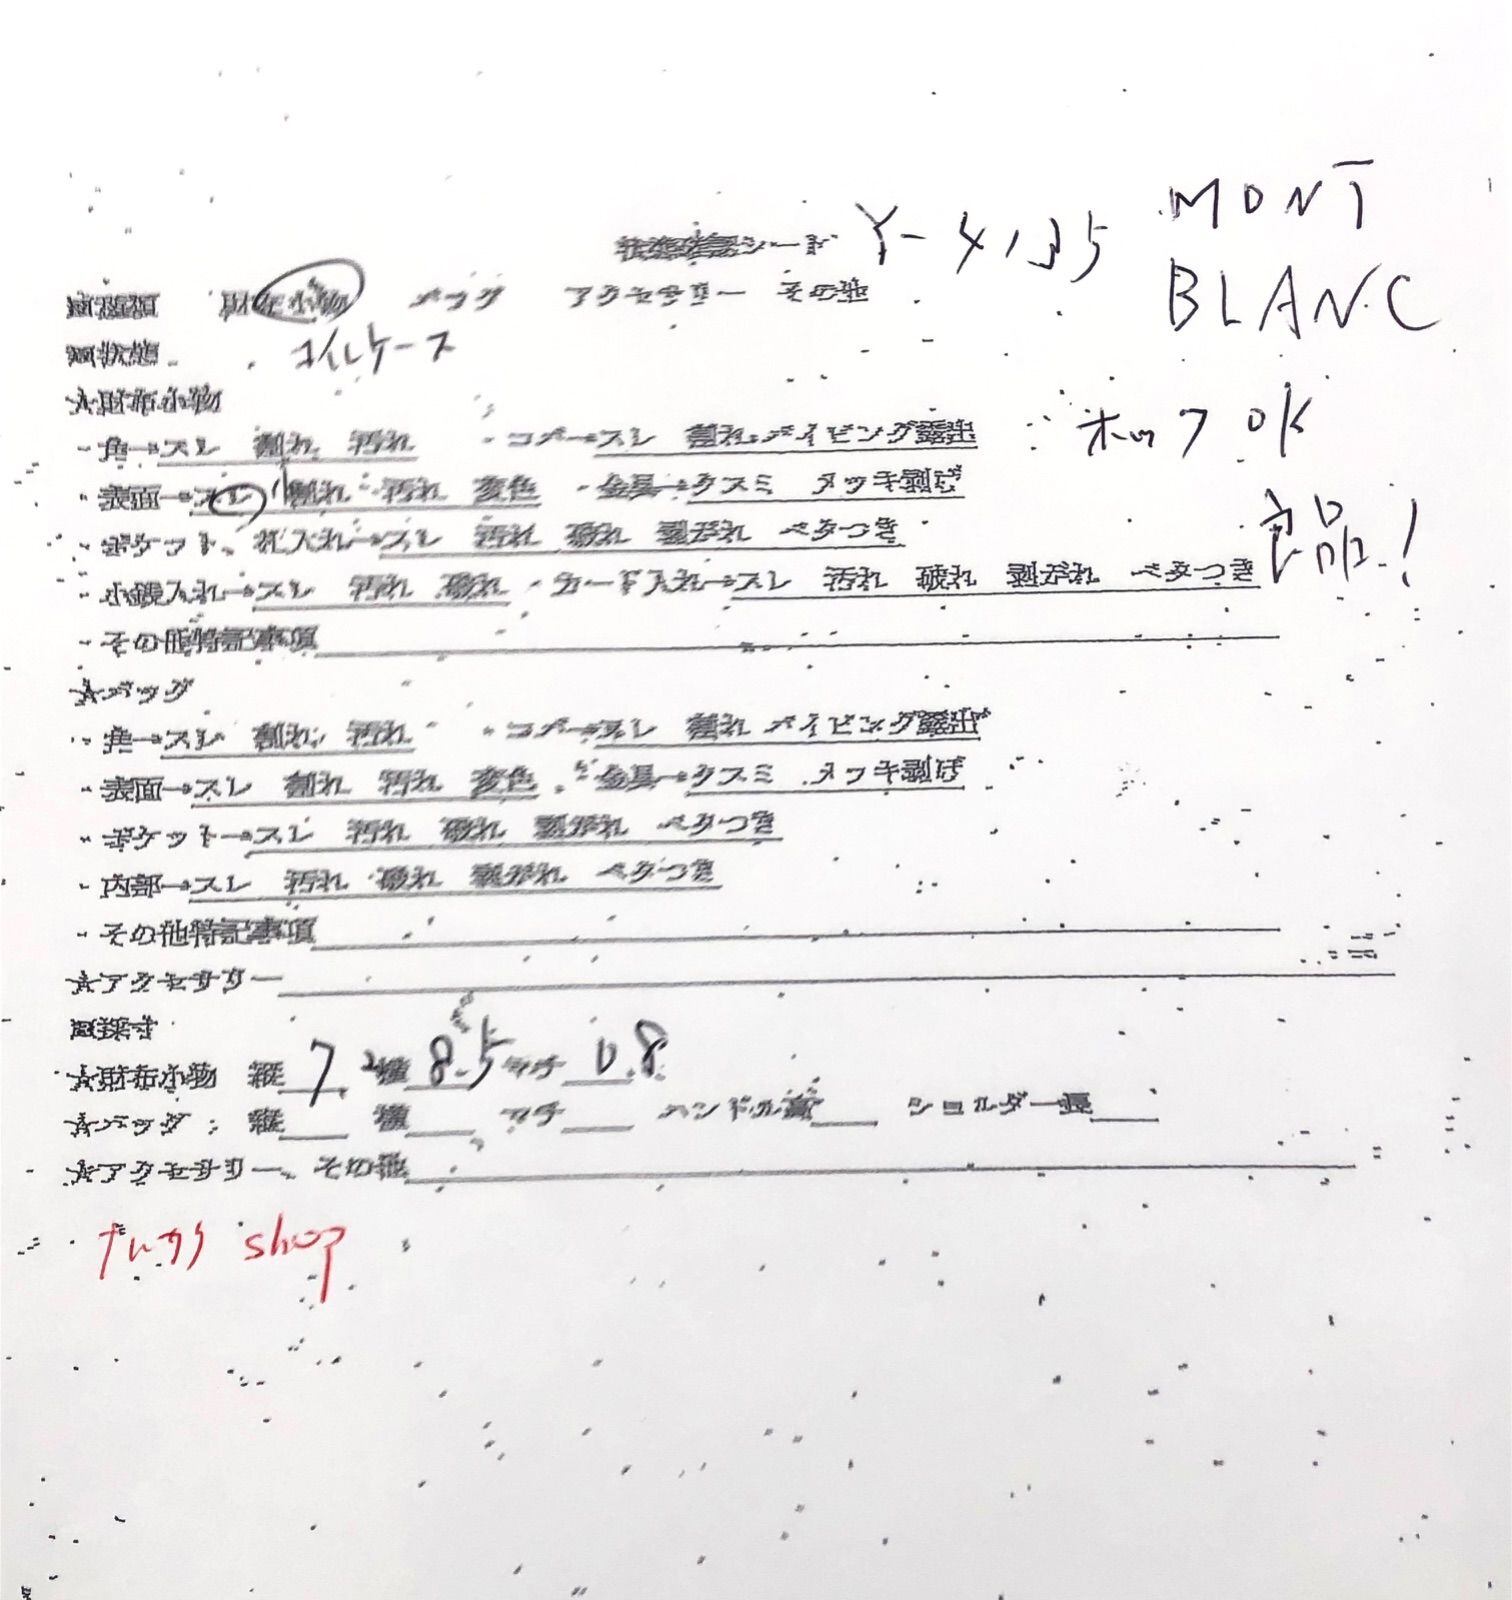 状態確認シート Y-4135 MONT
BLANC
■種類 財布小物 バッグ アクセサリー その他
■状態 コインケース
★財布小物
・角→スレ 割れ 汚れ ・コバ→スレ 割れ パイピング露出 ホック OK
・表面→スレ 小 割れ 汚れ 変色 ・金具→クスミ メッキ剥げ
良品!
・ポケット、札入れ→スレ 汚れ 破れ 剥がれ ベタつき
・小銭入れ→スレ 汚れ 破れ ・カード入れ→スレ 汚れ 破れ 剥がれ ベタつき
・その他特記事項
★バッグ
・角→スレ 割れ 汚れ ・コバ→スレ 割れ パイピング露出
・表面→スレ 割れ 汚れ 変色 ・金具→クスミ メッキ剥げ
・ポケット→スレ 汚れ 破れ 剥がれ ベタつき
・内部→スレ 汚れ 破れ 剥がれ ベタつき
・その他特記事項
★アクセサリー
■採寸
★財布小物 縦 7 横 8.5 マチ 0.8
★バッグ 縦 横 マチ ハンドル高 ショルダー長
★アクセサリー、その他
shop